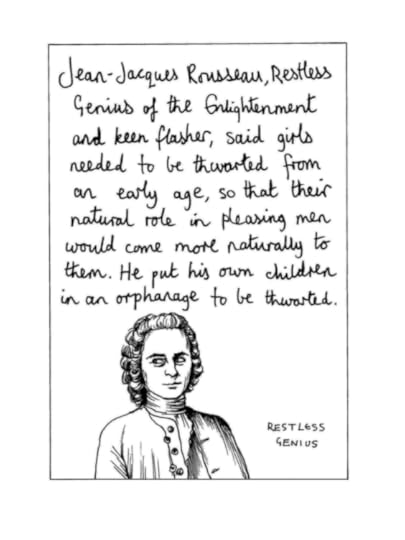 Jean-Jacques Rousseau, Restless
Genius of the Enlightenment
and keen flasher, said girls
needed to be thwarted from
an early age, so that their
natural role in pleasing men
would come more naturally to
them. He put his own children
in an orphanage to be thwarted.
RESTLESS
GENIUS